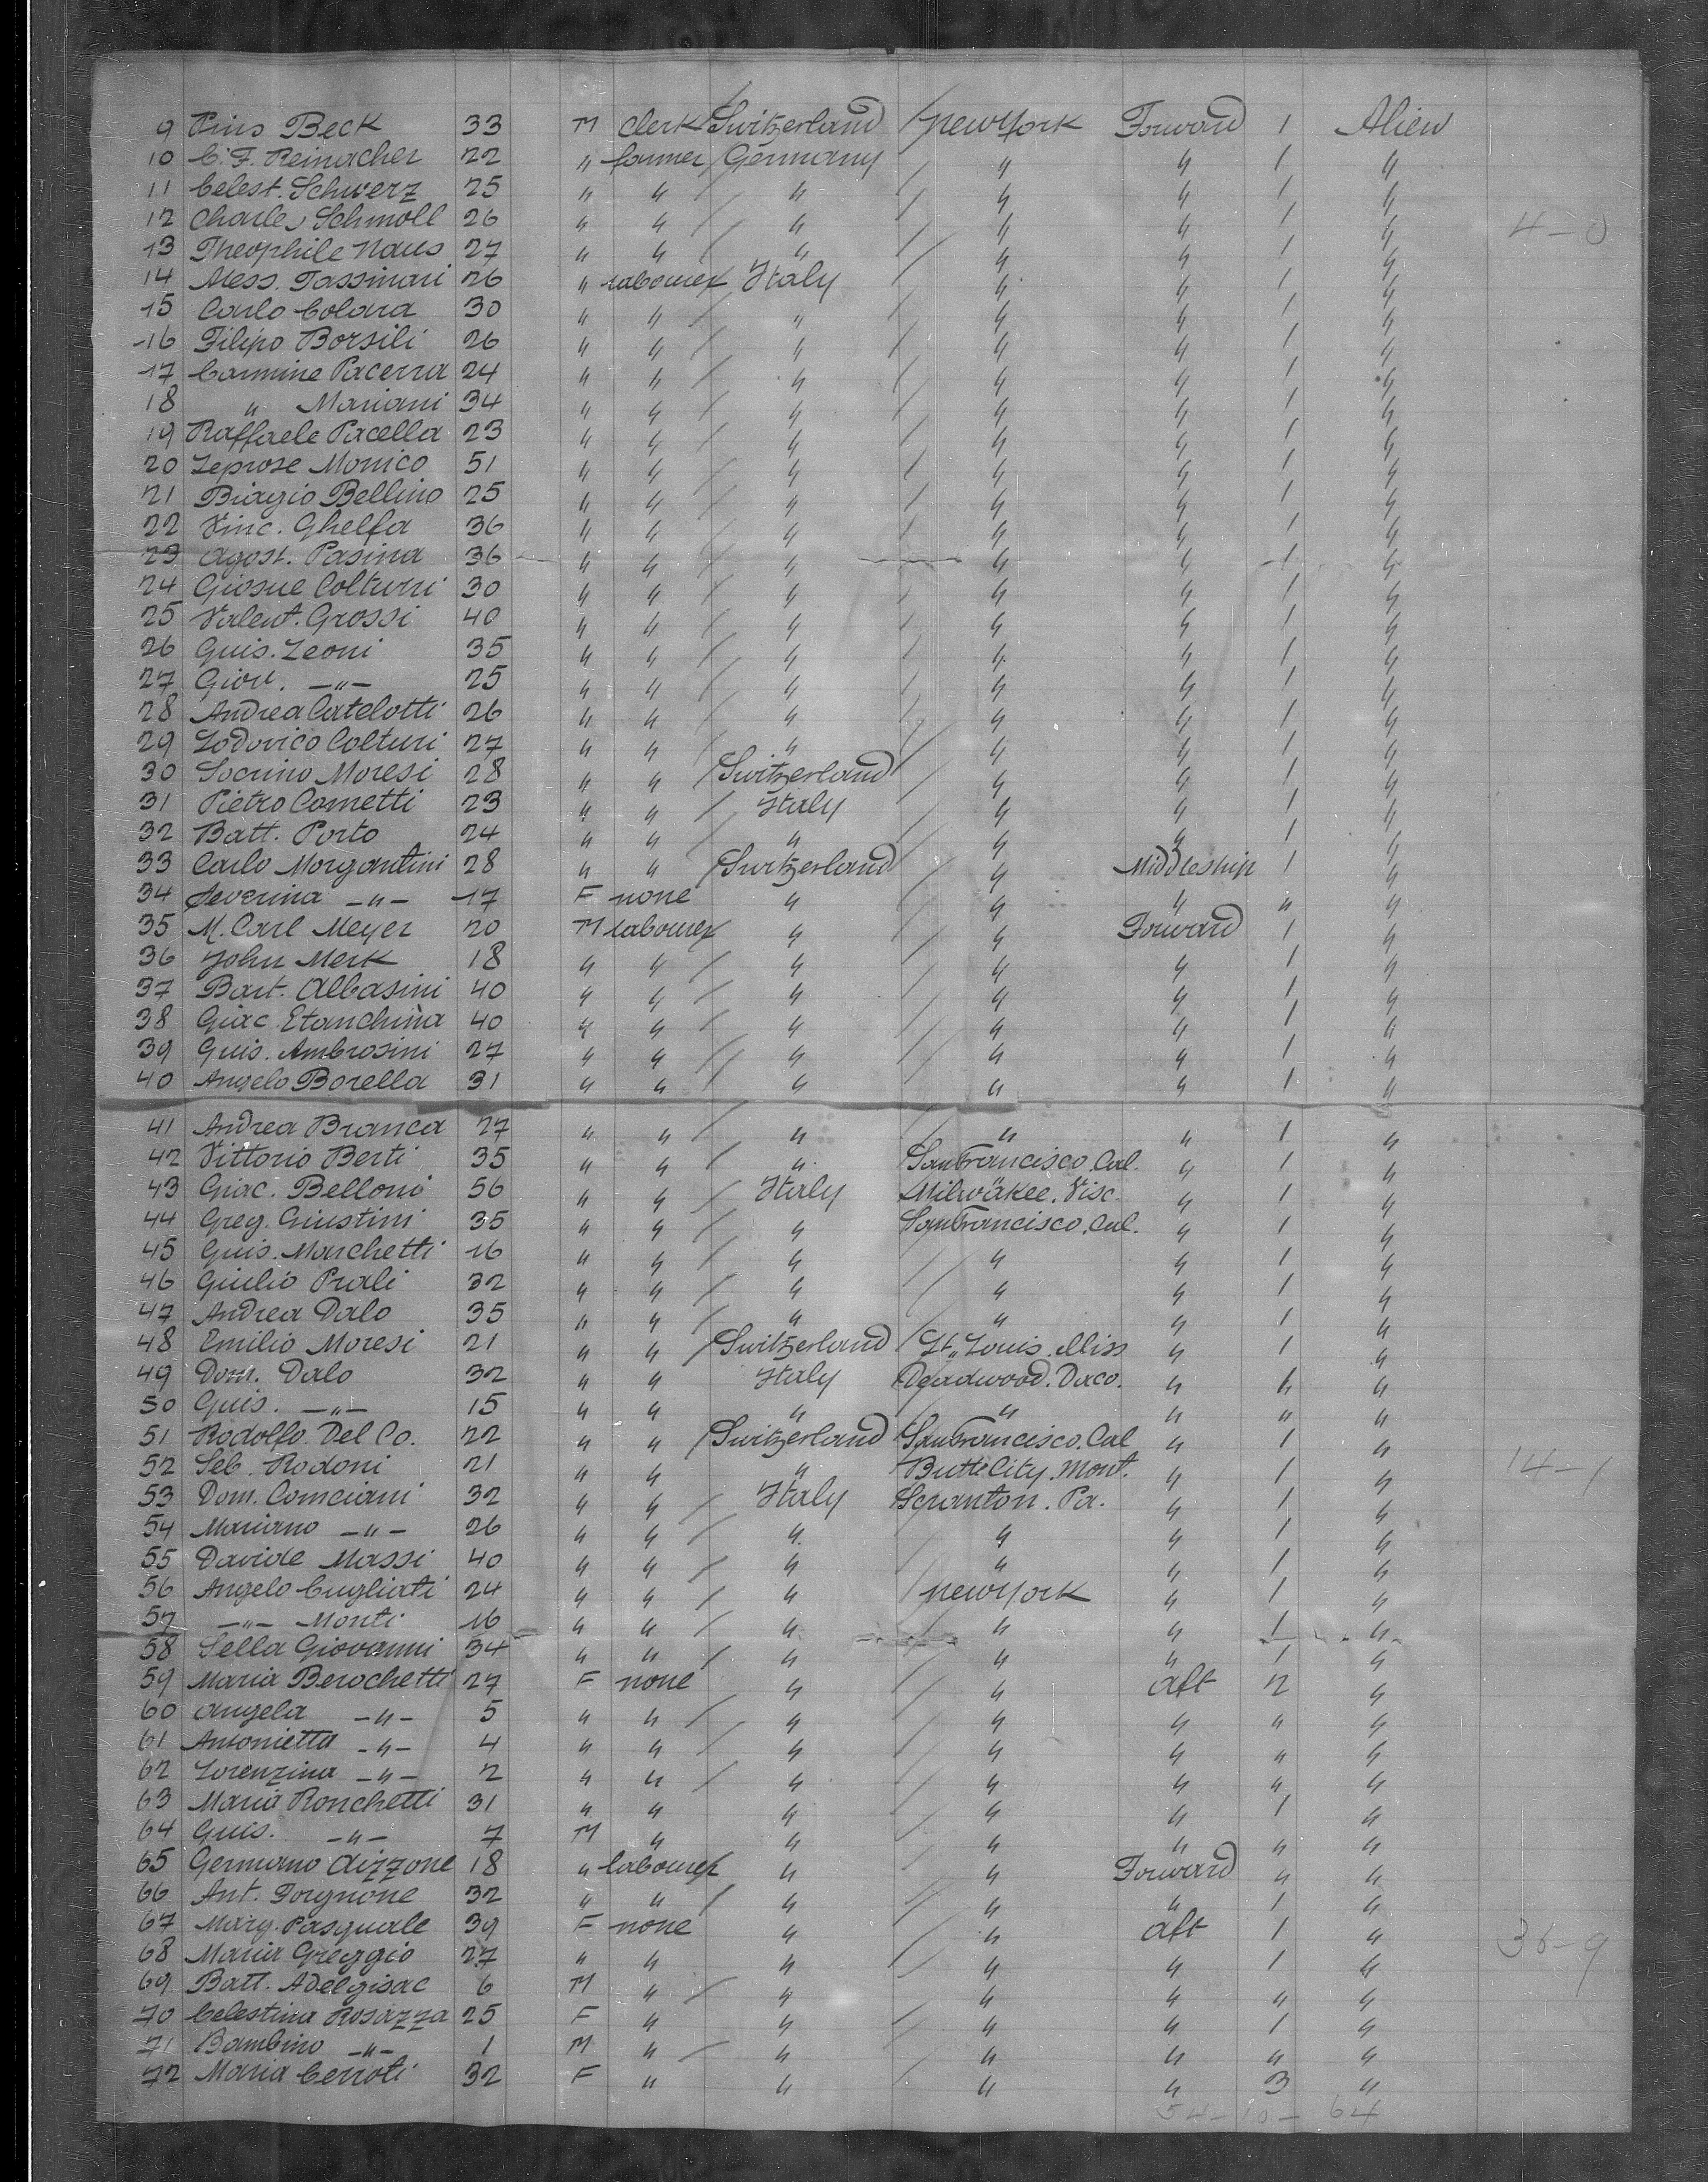 9 Pius Beck 33 M clerk Switzerland New York Forward 1 Alien
10 C. F. Reinacher 22 " farmer Germany " " 1 "
11 Celest. Schwerz 25 " " " " " 1 "
12 Charles Schmoll 26 " " " " " 1 " 4-0
13 Theophile Naus 27 " " " " " 1 "
14 Aless. Tassinari 26 " labourer Italy " " 1 "
15 Carlo Colara 30 " " " " " 1 "
16 Filipo Borsili 26 " " " " " 1 "
17 Carmine Pacerra 24 " " " " " 1 "
18 " Mariani 34 " " " " " 1 "
19 Raffaele Pacella 23 " " " " " 1 "
20 Leprose Monico 51 " " " " " 1 "
21 Biagio Bellino 25 " " " " " 1 "
22 Vinc. Ghelfa 36 " " " " " 1 "
23 Agost. Pasina 36 " " " " " 1 "
24 Giosue Colturri 30 " " " " " 1 "
25 Valent. Grossi 40 " " " " " 1 "
26 Guis. Leoni 35 " " " " " 1 "
27 Giov. -"- 25 " " " " " 1 "
28 Andrea Catelotti 26 " " " " " 1 "
29 Lodovico Colturi 27 " " " " " 1 "
30 Socrino Moresi 28 " " Switzerland " " 1 "
31 Pietro Cometti 23 " " Italy " " 1 "
32 Batt. Porto 24 " " " " " 1 "
33 Carlo Morgantini 28 " " Switzerland " Middleship 1 "
34 Severina -"- 17 F none " " " " "
35 M. Carl Meyer 20 M labourer " " Forward 1 "
36 John Merk 18 " " " " " 1 "
37 Bart. Albasini 40 " " " " " 1 "
38 Giac. Etanchina 40 " " " " " 1 "
39 Guis. Ambrosini 27 " " " " " 1 "
40 Angelo Borella 31 " " " " " 1 "
41 Andrea Branca 27 " " " " " 1 "
42 Vittorio Berti 35 " " " San Francisco. Cal. " 1 "
43 Giac. Belloni 56 " " Italy Milwäkee. Visc. " 1 "
44 Greg. Giustini 35 " " " San Francisco. Cal. " 1 "
45 Guis. Marchetti 16 " " " " " 1 "
46 Giulio Prali 32 " " " " " 1 "
47 Andrea Dalo 35 " " " " " 1 "
48 Emilio Moresi 21 " " Switzerland St. Louis. Miss " 1 "
49 Dom. Dalo 32 " " Italy Deadwood. Daco. " " "
50 Guis. -"- 15 " " " " " " "
51 Rodolfo Del Co. 22 " " Switzerland San Francisco. Cal " 1 "
52 Seb. Rodoni 21 " " " Butte City. Mont. " 1 " 14-1
53 Dom. Comciani 32 " " Italy Scranton. Pa. " 1 "
54 Mariano -"- 26 " " " " " 1 "
55 Davide Massi 40 " " " " " 1 "
56 Angelo Cugliati 24 " " " New York " 1 "
57 -"- Monti 16 " " " " " 1 "
58 Sella Giovanni 34 " " " " " 1 "
59 Maria Berochetti 27 F none " " aft 2 "
60 Angela -"- 5 " " " " " " "
61 Antonietta -"- 4 " " " " " " "
62 Lorenzina -"- 2 " " " " " " "
63 Maria Ronchetti 31 " " " " " 1 "
64 Guis. -"- 7 M " " " " " "
65 Germano Aizzone 18 " labourer " " Forward " "
66 Ant. Forgnone 32 " " " " " 1 "
67 Marg. Pasquale 39 F none " " aft 1 "
68 Maria Greggio 27 " " " " " 1 " 36-9
69 Batt. Adelgisac 6 M " " " " " "
70 Celestina Rosazza 25 F " " " " 1 "
71 Bambino -"- 1 M " " " " " "
72 Maria Cerroti 32 F " " " " 3 "
54-10-64